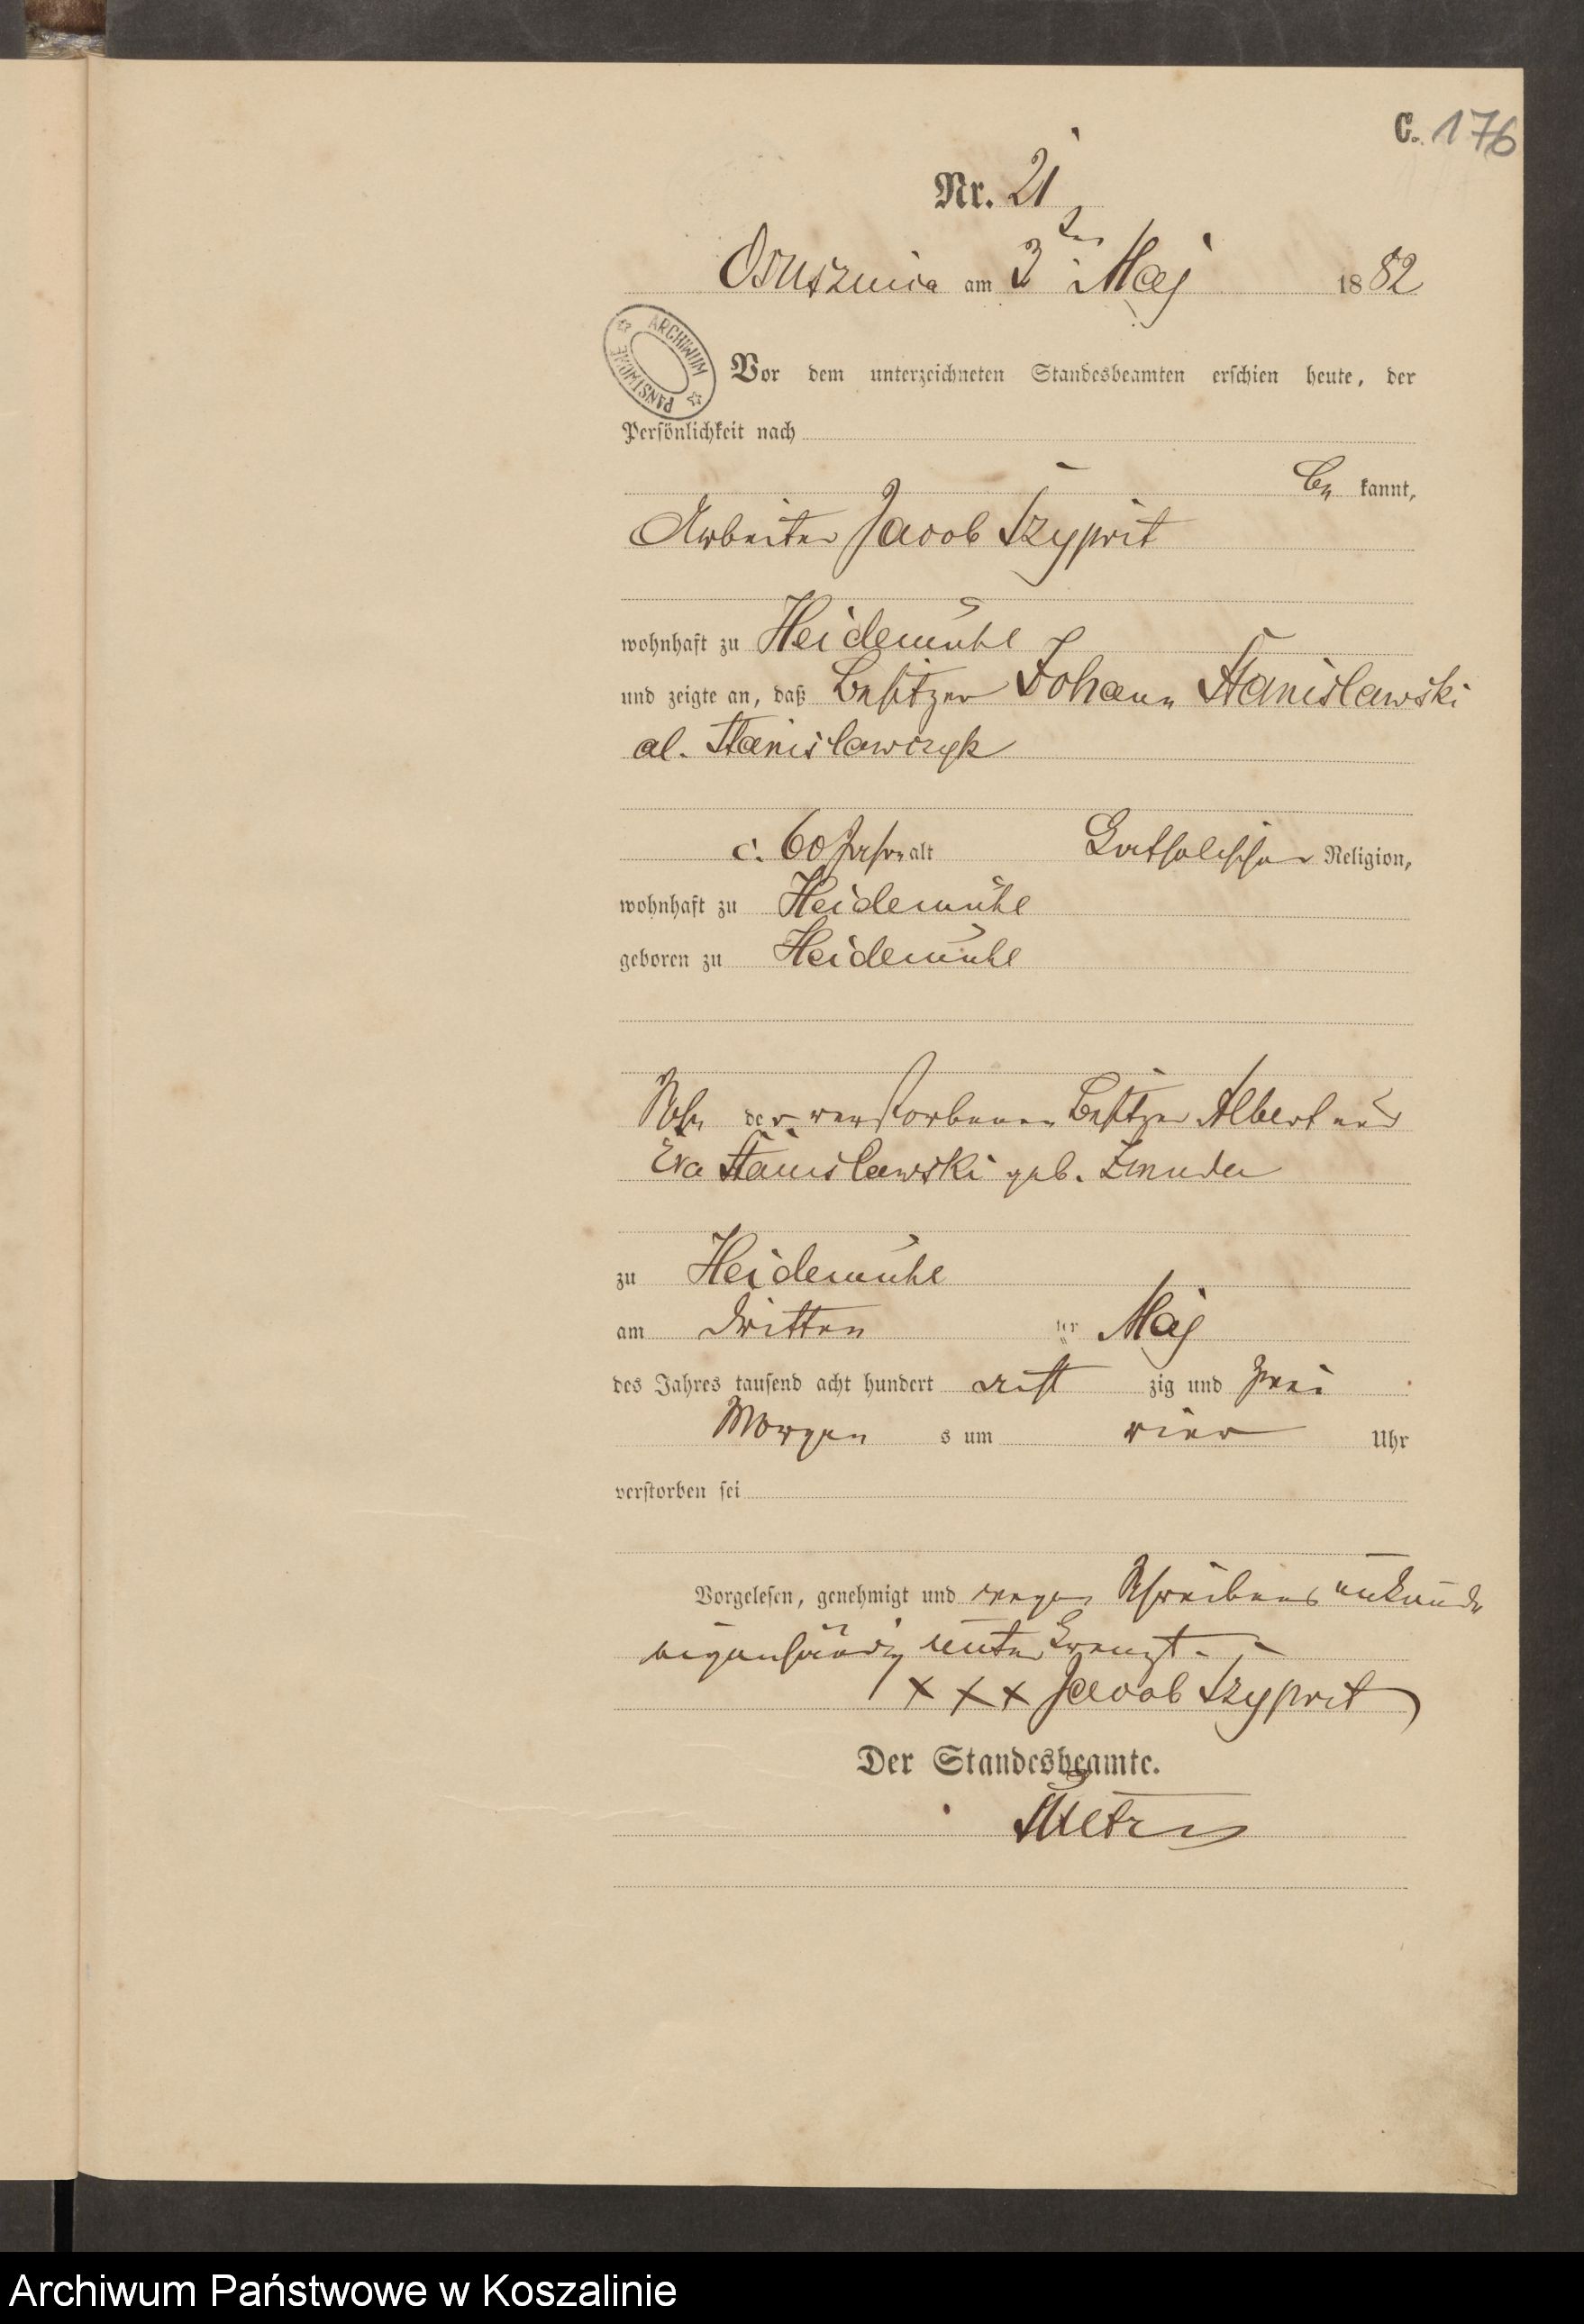 C. 176
Nr. 21
Osusznica am 3ten Maj 1882
ARCHIWUM PAŃSTWOWE
Vor dem unterzeichneten Standesbeamten erschien heute, der
Persönlichkeit nach
be kannt,
Arbeiter Jacob Szyprit
wohnhaft zu Heidemühl
und zeigte an, daß Besitzer Johann Stanislawski
al. Stanislawczyk
c. 60 Jahre alt Katholischer Religion,
wohnhaft zu Heidemühl
geboren zu Heidemühl
Sohn der verstorbenen Besitzer Albert und
Eva Stanislawski geb. Zmuda
zu Heidemühl
am dritten ter Maj
des Jahres tausend acht hundert acht zig und zwei
Morgen s um vier Uhr
verstorben sei
Vorgelesen, genehmigt und wegen Schreibens unkunde
eigenhändig unterkreuzt.
XXX Jacob Szyprit
Der Standesbeamte.
Archiwum Państwowe w Koszalinie